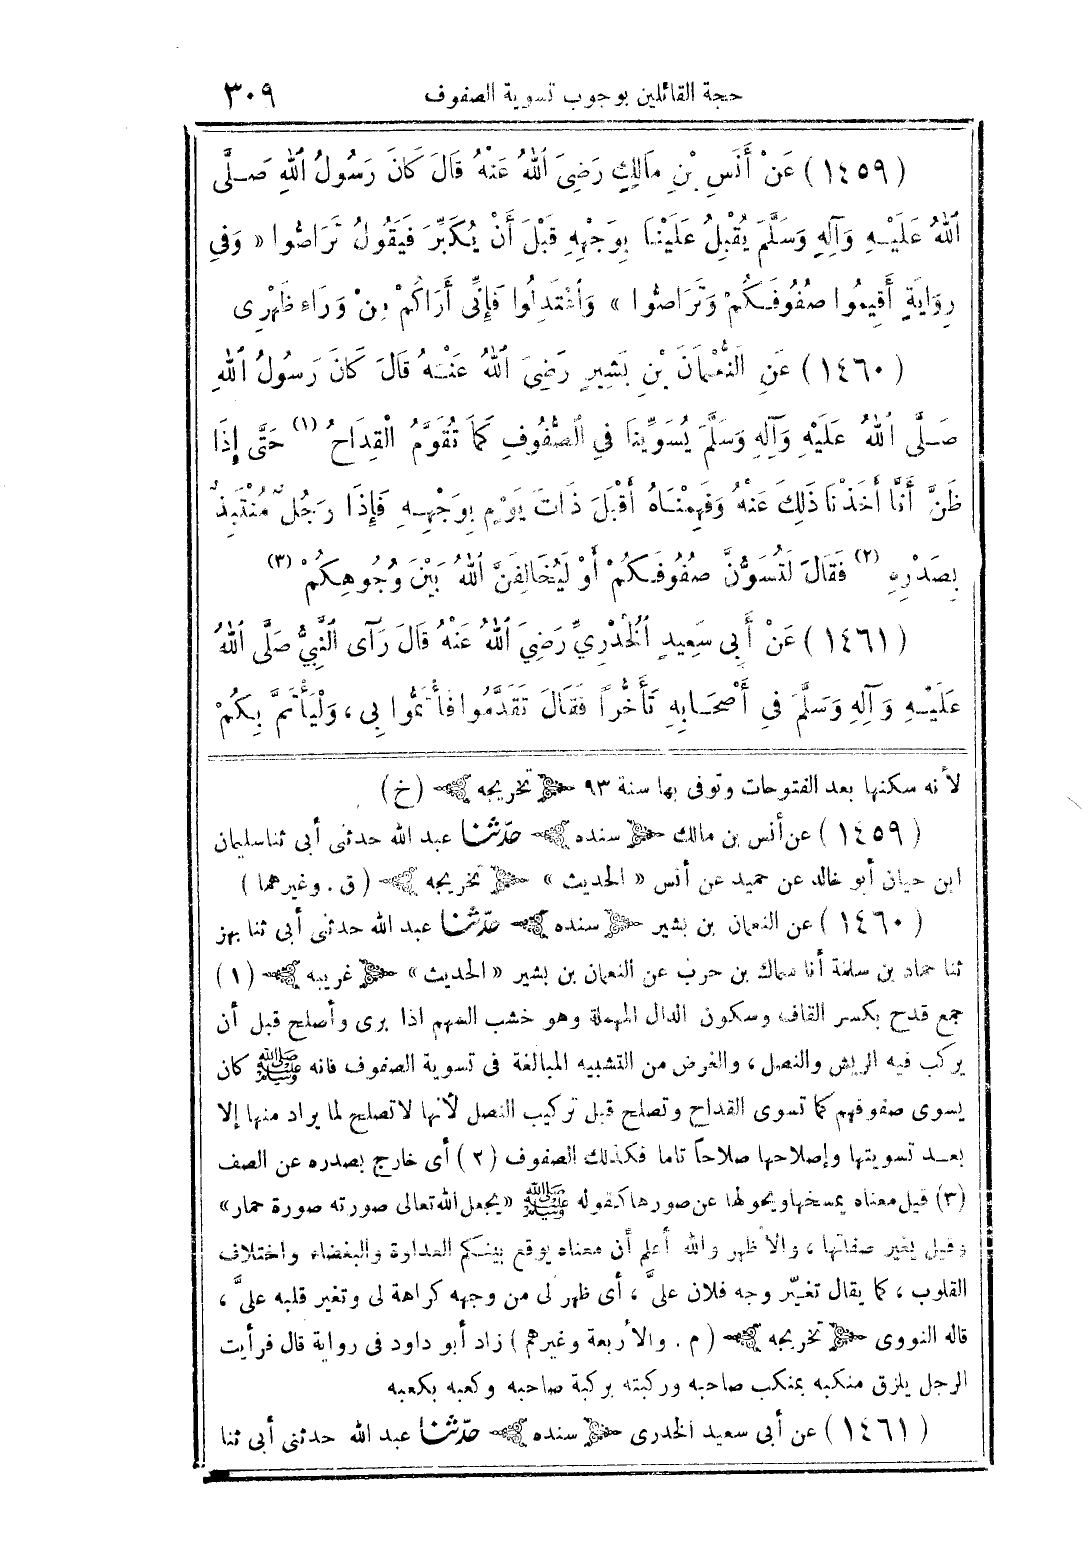 حجة القائلين بوجوب تسوية الصفوف ٣٠٩
(١٤٥٩) عَنْ أَنَسِ بْنِ مَالِكٍ رَضِيَ اللهُ عَنْهُ قَالَ كَانَ رَسُولُ اللهِ صَلَّى
اللهُ عَلَيْهِ وَآلِهِ وَسَلَّمَ يُقْبِلُ عَلَيْنَا بِوَجْهِهِ قَبْلَ أَنْ يُكَبِّرَ فَيَقُولُ تَرَاصُّوا « وَفِي
رِوَايَةٍ أَقِيمُوا صُفُوفَكُمْ وَتَرَاصُّوا » وَاعْتَدِلُوا فَإِنِّي أَرَاكُمْ مِنْ وَرَاءِ ظَهْرِى
(١٤٦٠) عَنِ النُّعْمَانَ بْنِ بَشِيرٍ رَضِيَ اللهُ عَنْهُ قَالَ كَانَ رَسُولُ اللهِ
صَلَّى اللهُ عَلَيْهِ وَآلِهِ وَسَلَّمَ يُسَوِّينَا فِي الصُّفُوفِ كَمَا تُقَوَّمُ الْقِدَاحُ (١) حَتَّى إِذَا
ظَنَّ أَنَّا أَخَذْنَا ذَلِكَ عَنْهُ وَفَهِمْنَاهُ أَقْبَلَ ذَاتَ يَوْمٍ بِوَجْهِهِ فَإِذَا رَجُلٌ مُنْتَبِذٌ
بِصَدْرِهِ (٢) فَقَالَ لَتُسَوُّنَّ صُفُوفَكُمْ أَوْ لَيُخَالِفَنَّ اللهُ بَيْنَ وُجُوهِكُمْ (٣)
(١٤٦١) عَنْ أَبِى سَعِيدٍ الْخُدْرِيِّ رَضِيَ اللهُ عَنْهُ قَالَ رَآى النَّبِيُّ صَلَّى اللهُ
عَلَيْهِ وَآلِهِ وَسَلَّمَ فِي أَصْحَابِهِ تَأَخُّراً فَقَالَ تَقَدَّمُوا فَأْتَمُّوا بِي، وَلْيَأْتَمَّ بِكُمْ
لأنه سكنها بعد الفتوحات وتوفى بها سنة ٩٣ ﴿تخريجه﴾ (خ)
(١٤٥٩) عن أنس بن مالك ﴿سنده﴾ حدّثنا عبد الله حدثنى أبى ثنا سليمان
ابن حيان أبو خالد عن حميد عن أنس « الحديث » ﴿تخريجه﴾ (ق. وغيرهما)
(١٤٦٠) عن النعمان بن بشير ﴿سنده﴾ حدّثنا عبد الله حدثنى أبى ثنا بهز
ثنا حماد بن سلمة أنا سماك بن حرب عن النعمان بن بشير «الحديث» ﴿غريبه﴾ (١)
جمع قدح بكسر القاف وسكون الدال المهملة وهو خشب السهم اذا برى وأصلح قبل أن
يركب فيه الريش والنصل، والغرض من التشبيه المبالغة فى تسوية الصفوف فانه ﷺ كان
يسوى صفوفهم كما تسوى القداح وتصلح قبل تركيب النصل لأنها لا تصلح لما يراد منها إلا
بعد تسويتها وإصلاحها صلاحاً تاما فكذلك الصفوف (٢) أى خارج بصدره عن الصف
(٣) قيل معناه يمسخها ويحولها عن صورها كقوله ﷺ «يجعل الله تعالى صورته صورة حمار»
وقيل يغير صفاتها، والأظهر والله أعلم أن معناه يوقع بينكم العداوة والبغضاء واختلاف
القلوب، كما يقال تغيّر وجه فلان علىَّ، أى ظهر لى من وجهه كراهة لى وتغير قلبه علىَّ،
قاله النووى ﴿تخريجه﴾ (م. والأربعة وغيرهم) زاد أبو داود فى رواية قال فرأيت
الرجل يلزق منكبه بمنكب صاحبه وركبته بركبة صاحبه وكعبه بكعبه
(١٤٦١) عن أبى سعيد الخدرى ﴿سنده﴾ حدّثنا عبد الله حدثنى أبى ثنا